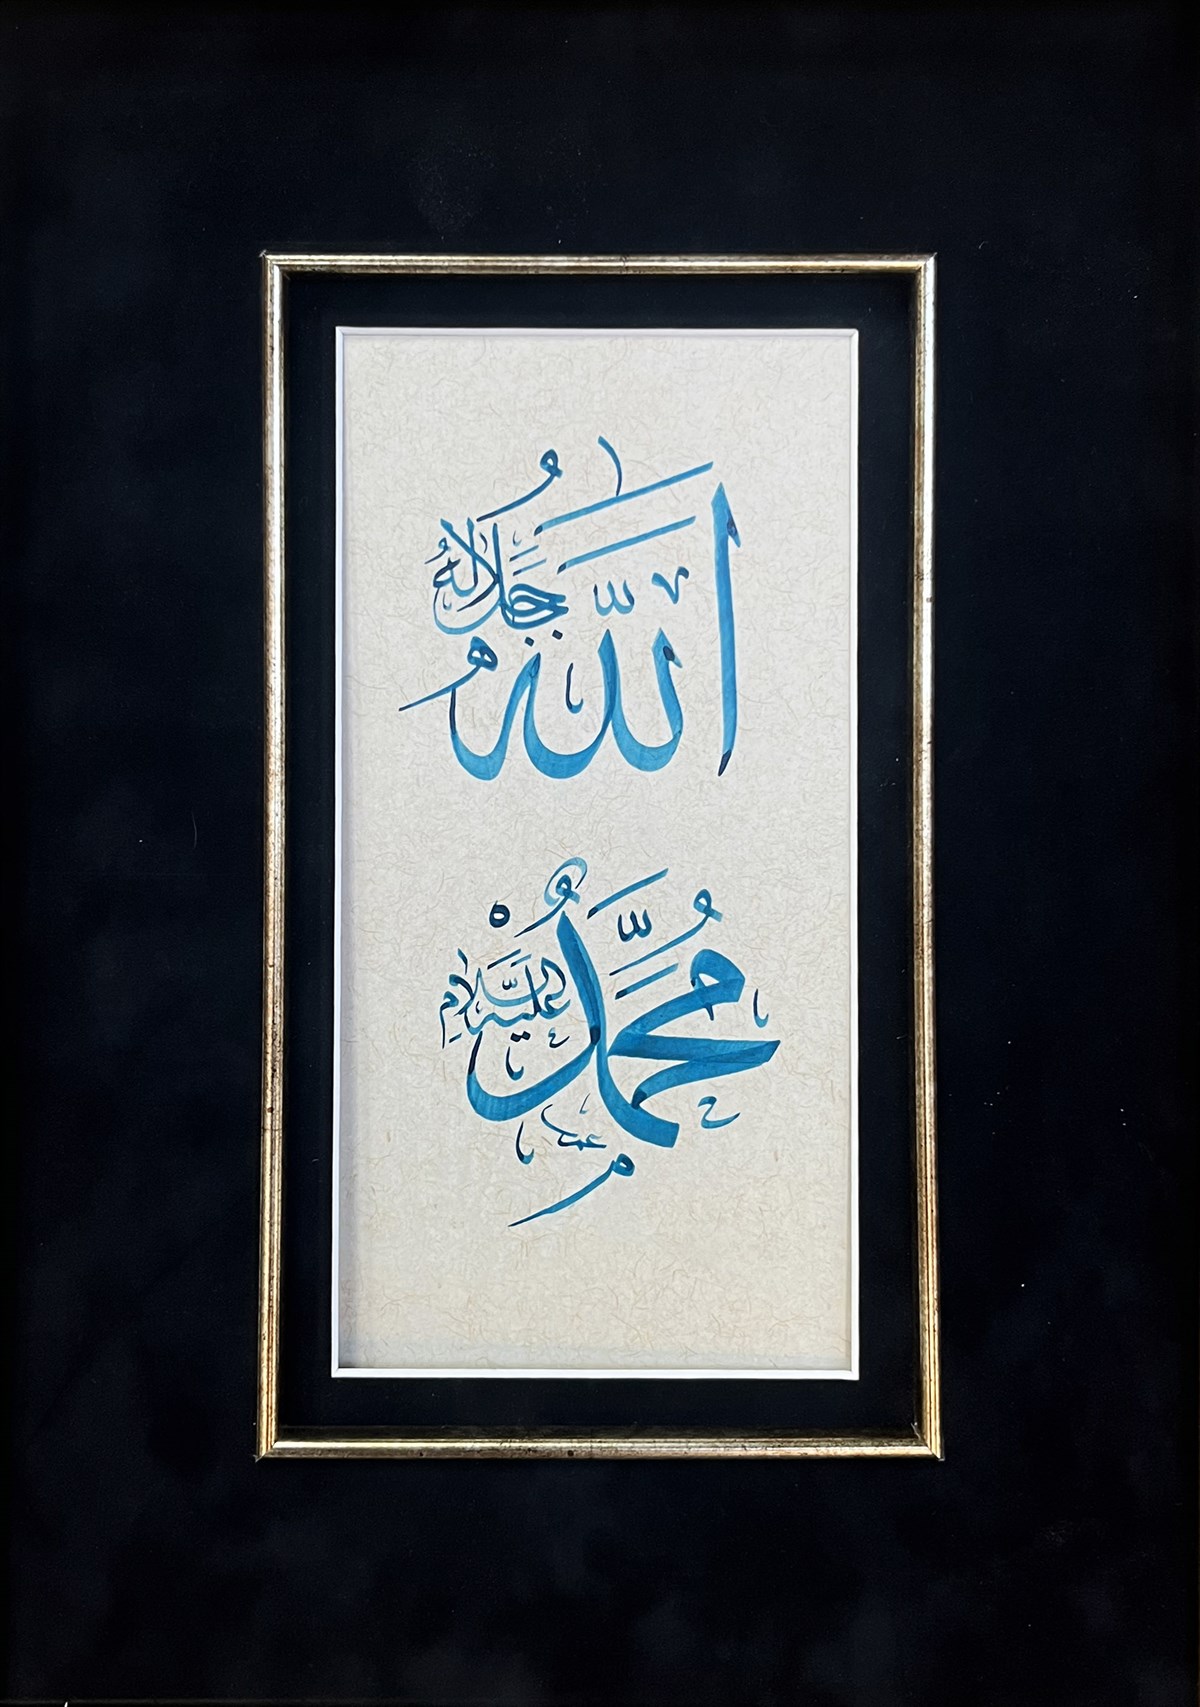 اللّٰهُ جَلَّ جَلَالُهُ
مُحَمَّدٌ عَلَيْهِ السَّلَامِ